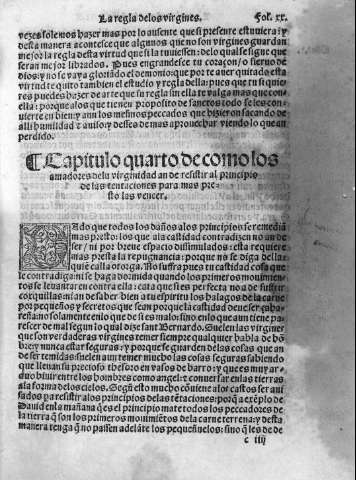 La regla delos virgines. Fol. xx.
vezes solemos hazer mas por lo ausente que si presente estuviera: y
desta manera acontesce que algunos que no son virgines guardan
mejor la regla desta virtud que si la tuuiessen: delo qual se sigue que
seran mejor librados. Pues engrandesce tu coraçon/ o sieruo de
dios: y no se vaya gloriãdo el demonio: que por te auer quitado esta
virtud te quito tambien el estudio y regla della: pues que tu si quie-
res puedes hazer de arte que su regla sin ella te valga mas que con e-
lla: porque alos que tienen proposito de sanctos todo se les con-
uierte en bien: y aun los mesmos peccados que hizieron sacando de
alli humildad & auiso: y desseo de mas aprouechar viendo lo que an
perdido.
¶ Capitulo quarto de como los
amadores dela virginidad an de resistir al principio
de las tentaciones para mas pre-
sto las vencer.
DAdo que todos los daños alos principios se remediã
mas presto: los que ala castidad contradizen no an de
ser/ ni por breue espacio dissimulados: esta requiere
mas presta la repugnancia: porque no se diga della:
quiē calla otorga. No suffra pues tu castidad cosa que
le contradiga: ni se haga dormida quando los primeros mouimien-
tos se leuantaren contra ella: cata que si es perfecta no a de suffrir
coxquillas: ni an de saber bien a tu espiritu los halagos de la carne
por pequeños y secretos que sean porque la castidad deue ser çaha-
reña no solamente enlo que de si es malo: sino enlo que aun tiene pa-
rescer de mal segun lo qual dize sant Bernardo. Suelen las virgines
que son verdaderas virgines temer siempre qualquier habla de hõ
bre: y nunca estar seguras: y porque se guarden delas cosas que an
de ser temidas: suelen aun temer mucho las cosas seguras sabiendo
que lleuan su precioso thesoro en vasos de barro: y que es muy ar-
duo biuir entre los hombres como angel: & conuersar en las tierras
ala forma delos cielos. Segũ esto mucho cõuiene alos castos ser aui-
sados pa resistir alos principios delas tētaciones: porq̃ a exēplo de
Dauid enla mañana q̃ es el principio mate todos los peccadores de
la tierra q̃ son los primeros mouimiētos dela carne terrena: y desta
manera tenga q̃ no passen adelãte los pequeñuelos: sino q̃ les de de
c iiij